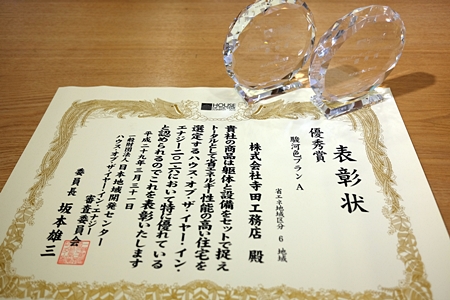 HOUSE
表彰状
優秀賞
駿河邑プランA
省エネ地域区分 6 地域
株式会社寺田工務店 殿
貴社の商品は躯体と設備をセットで捉え
トータルとして省エネルギー性能の高い住宅を
選定するハウス・オブ・ザ・イヤー・イン・
エナジー二〇一六において特に優れている
と認められるのでこれを表彰いたします
平成二十九年三月三十一日
一般財団法人日本地域開発センター
ハウス・オブ・ザ・イヤー・イン・エナジー
審査委員会
委員長 坂本雄三